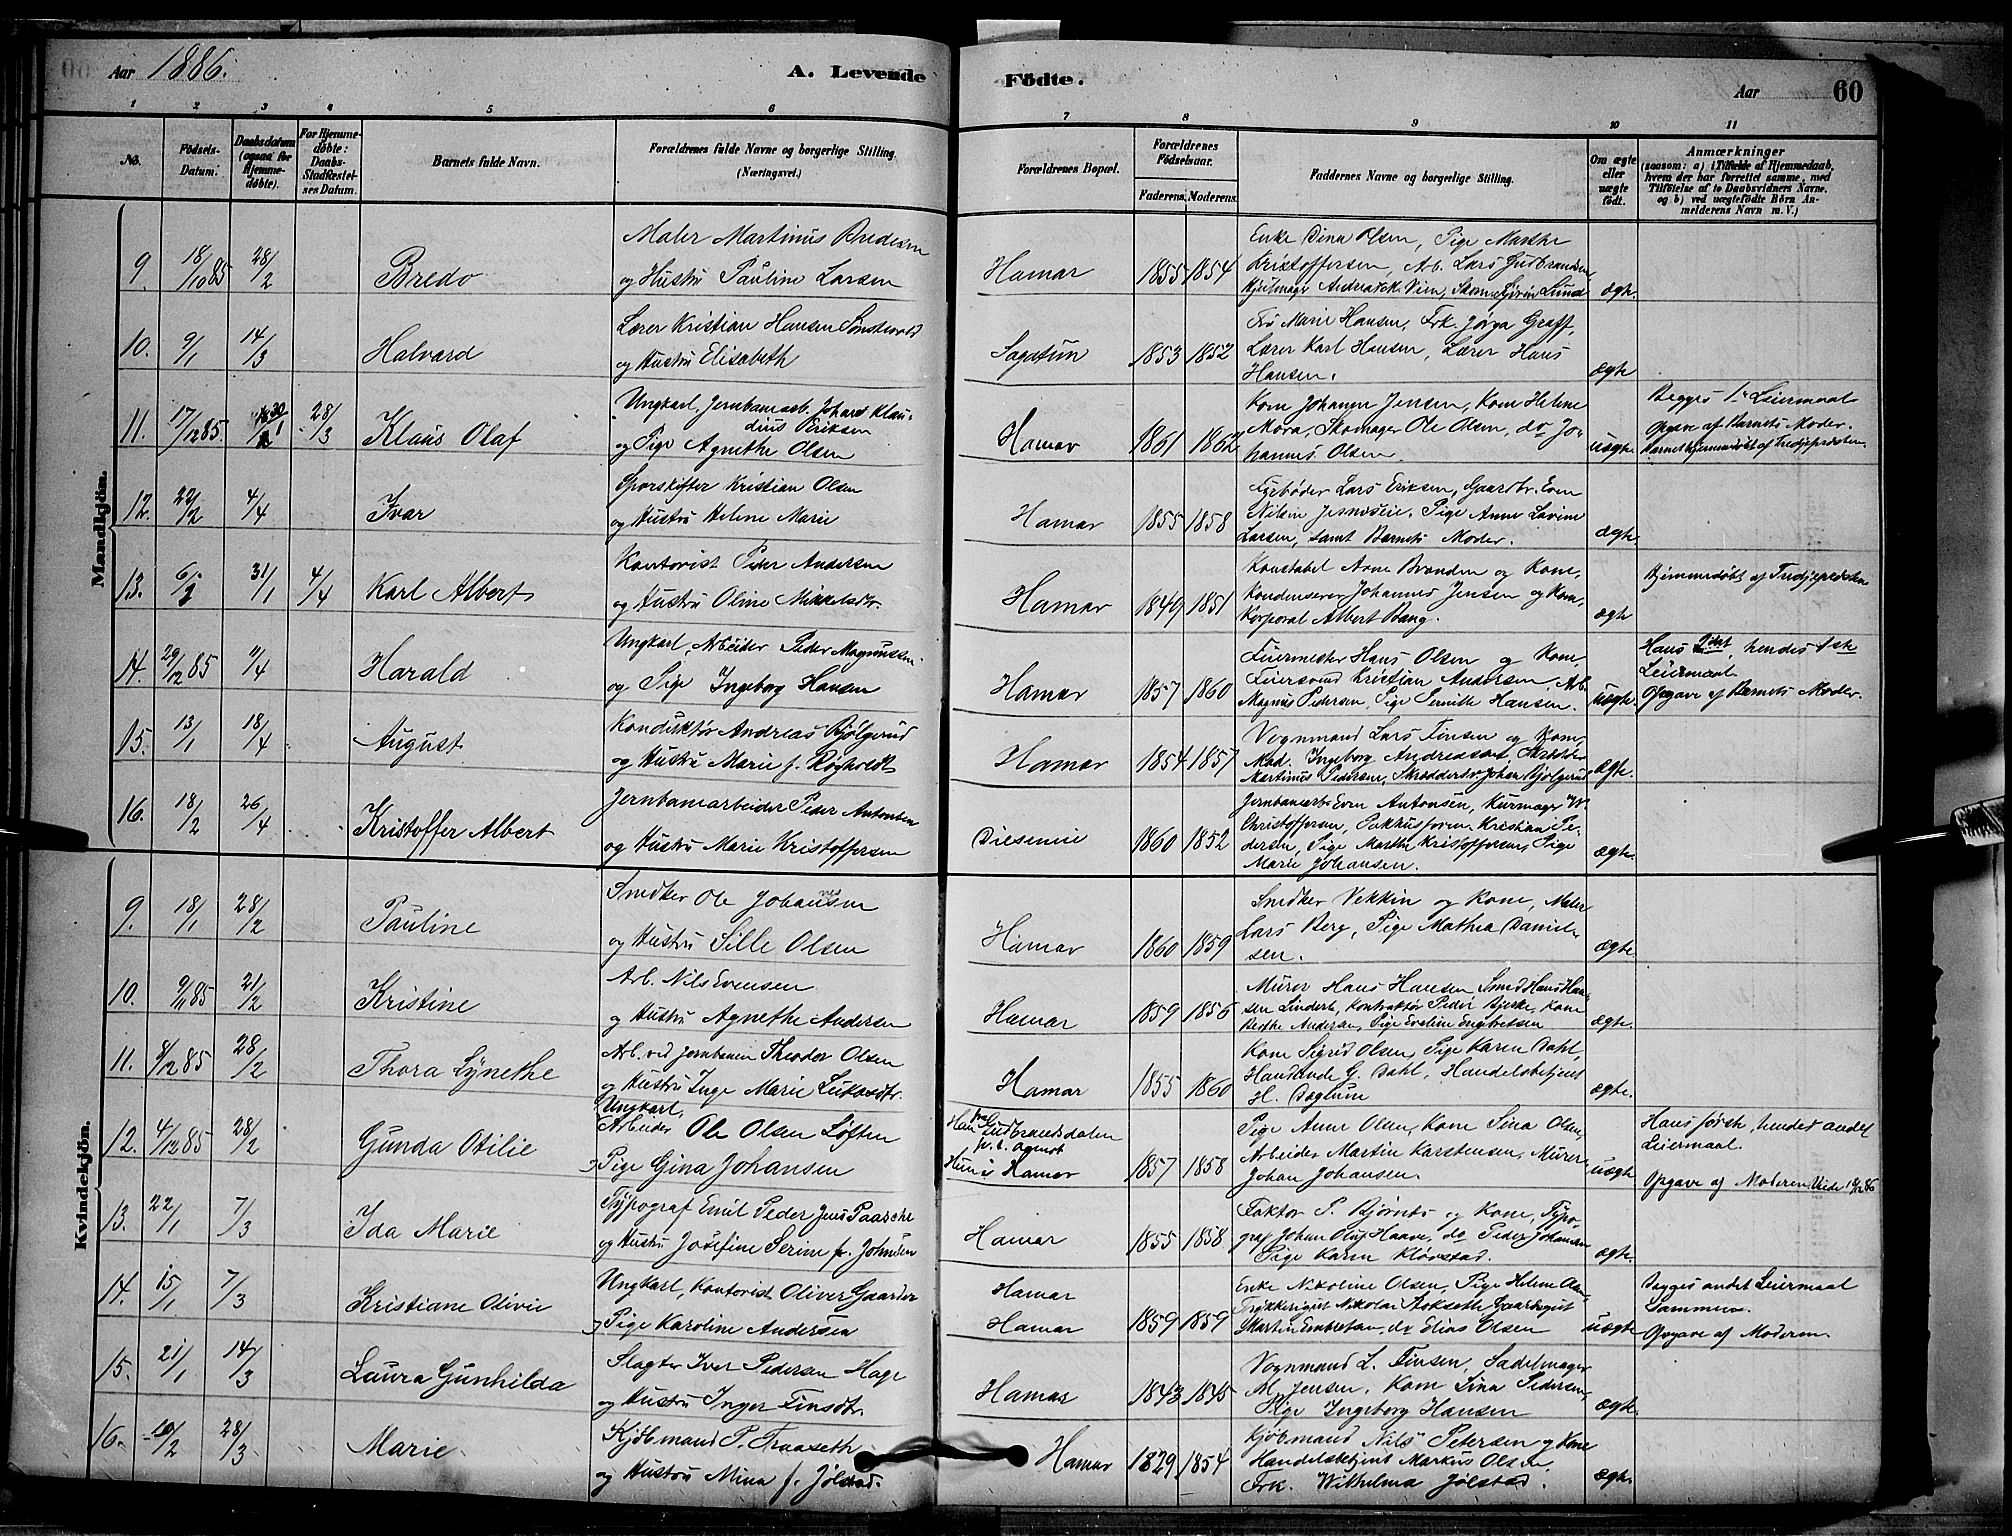 Aar 1886.
A. Levende Födte.
Aar 60
1 2 3 4 5 6 7 8 9 10 11
No.
Födsels-Datum.
Daabsdatum (ogsaa for Hjemmedöbte).
For Hjemmedøbte: Daabs-Stadfæstelses Datum.
Barnets fulde Navn.
Forældrenes fulde Navne og borgerlige Stilling. (Næringsvei.)
Forældrenes Bopæl.
Forældrenes Födselsaar.
Faderens. Moderens.
Faddernes Navne og borgerlige Stilling.
Om ægte eller uægte födt.
Anmærkninger
(saasom: a) i Tilfælde af Hjemmedaab, hvem der har forrettet samme, med Tilföielse af to Daabsvidners Navne, og b) ved uægtefödte Börn Anmelderens Navn m. V.)
Mandkjön.
9. 18/10 85 28/2 Bredo
Maler Martinus Bredesen
og Hustru Pauline Larsen
Hamar 1855 1854
Enke Dina Olsen, Pige Marthe
Kristoffersen, Arb. Lars Gudbrandsen
Hjulmager Lund
ægte.
10. 9/1 14/3 Halvard
Lærer Kristian Hansen
og Hustru Elisabeth
Sagatun 1853 1852
Fru Marie Hansen, Frk. Jørga Graff,
Lærer Karl Hansen, Lærer Hans
Hansen.
ægte
11. 17/12 85. 30/1 28/3 Klaus Olaf
Ungkarl, Jernbanearb. Johard Klau-
dius Eriksen
og Pige Agnethe Olsen
Hamar 1861 1862
Kone Johanne Jensen, Kone Helene
Mora, Skomager Ole Olsen, do Jo-
hannes Olsen
uægte
Begges 1. Leiermaal
Opgave af Barnets Moder.
Barnet hjemmedøbt af Tredjepresten
12. 22/2 4/4 Ivar
Sporskifter Kristian Olsen
og Hustru Helene Marie
Hamar 1855 1858
Fyrbøder Lars Eriksen, Gaardbr. Even
Nilsen Pige Anne Lovine
Larsen, samt Barnets Moder.
ægte.
13. 31/1 4/4 Karl Albert
Kontorist Peder Andersen
og Hustru Oline Mikkelsdtr.
Hamar 1849 1851
Konstabel Arne Branden og Kone,
Kondenserer Johannes Jensen og Kone,
Korporal Albert Bang.
ægte
Hjemmedøbt af Tredjepresten
14. 29/12 85 4/4 Harald
Ungkarl, Arbeider Peder Magnussen
og Pige Ingeborg Hansen
Hamar 1857 1860
Feiermester Hans Olsen og Kone,
Feiersvend Kristian Andersen, Arb.
Magnus Pedersen, Pige Pernille Hansen.
uægte.
Hans 2det hendes 1ste
Leiermaal.
Opgave af Barnets Moder.
15. 13/1 18/4 August
Konduktør Andreas Bjølgerud
og Hustru Marie f.
Hamar 1854 1857
Vognmand Lars Finsen og Kone
Mad. Ingeborg Andreassen,
Martinus Pedersen, Skræddersv. Johan Bjølgerud
ægte.
16. 18/2 26/4 Kristoffer Albert
Jernbanearbeider Peder Antonsen
og Hustru Marie Kristoffersen
1860 1852
Jernbanearb. Even Antonsen, Kurmager W.
Christoffersen, Pakhusform. Kristian Pe-
dersen, Pige Marthe Kristoffersen, Pige
Marie Johansen.
ægte.
Kvindekjön.
9. 18/1 28/2 Pauline
Snedker Ole Johannesen
og Hustru Sille Olsen
Hamar 1860 1859
Snedker Vekkin og Kone, Maler
Lars Berg, Pige Mathea Daniel-
sen.
ægte
10. 9/11 85 21/2 Kristine
Arb. Nils Evensen
og Hustru Agnethe Andersen
Hamar 1859 1856
Murer Hans Hansen Smed Hans Han-
sen Kontraktør Peder Bjerke, Kone
Berthe Andersen, Pige Eveline Engbretsen
ægte.
11. 8/12 85 28/2 Thora Lynethe
Arb. ved Jernbanen Theodor Olsen
og Hustru Inge Marie Lukasdtr.
Hamar 1855 1860
Kone Sigrid Olsen, Pige Karen Dahl,
Handlende G. Dahl, Handelsbetjent
H. Doglum
ægte.
12. 4/12 85 28/2 Gunda Otilie
Ungkarl,
Arbeider Ole Olsen Løften
Pige Gina Johansen
Han fra Gudbrandsdalen
Hun i Hamar 1857 1858
Pige Anne Olsen, Kone Sina Olsen,
Arbeider Martin Karstensen, Murer
Johan Johansen.
uægte
Hans første hendes andet
Leiermaal.
Opgave af Moderen
13. 22/1 7/3 Ida Marie
Typograf Emil Peder Jens Paasche
og Hustru Josefine Serine f. Johnsen
Hamar 1855 1858
Faktor P. Bjørnts og Kone, Typo-
graf Johan Oluf Haave, do Peder Johansen
Pige Karen Kløvstad.
ægte.
14. 15/1 7/3 Kristiane Olivie
Ungkarl, Kontorist Oliver Gaarder
Pige Karoline Andersen
Hamar
Hamar 1859 1859
Enke Nikoline Olsen, Pige Helene
Trykkerigut Nikolai
Martin Embretsen, do Elias Olsen
uægte
Begges andet Leiermaal
sammen.
Opgave af Moderen
15. 21/1 14/3 Laura Gunhilda
Slagter Iver Pedersen Hage
og Hustru Inger Finsdtr.
Hamar 1843 1845
Vognmand L. Finsen, Sadelmager
M. Jensen, Kone Lina Pedersen,
Pige Ingeborg Hansen
ægte.
16. 10/2 28/3 Marie
Kjøbmand P. Fraaseth
og Hustru Mina f. Jølstad.
Hamar 1829 1854
Kjøbmand Nils Petersen og Kone
Handelsbetjent Markus Olsen.
Frk. Wilhelma Jølstad.
ægte.